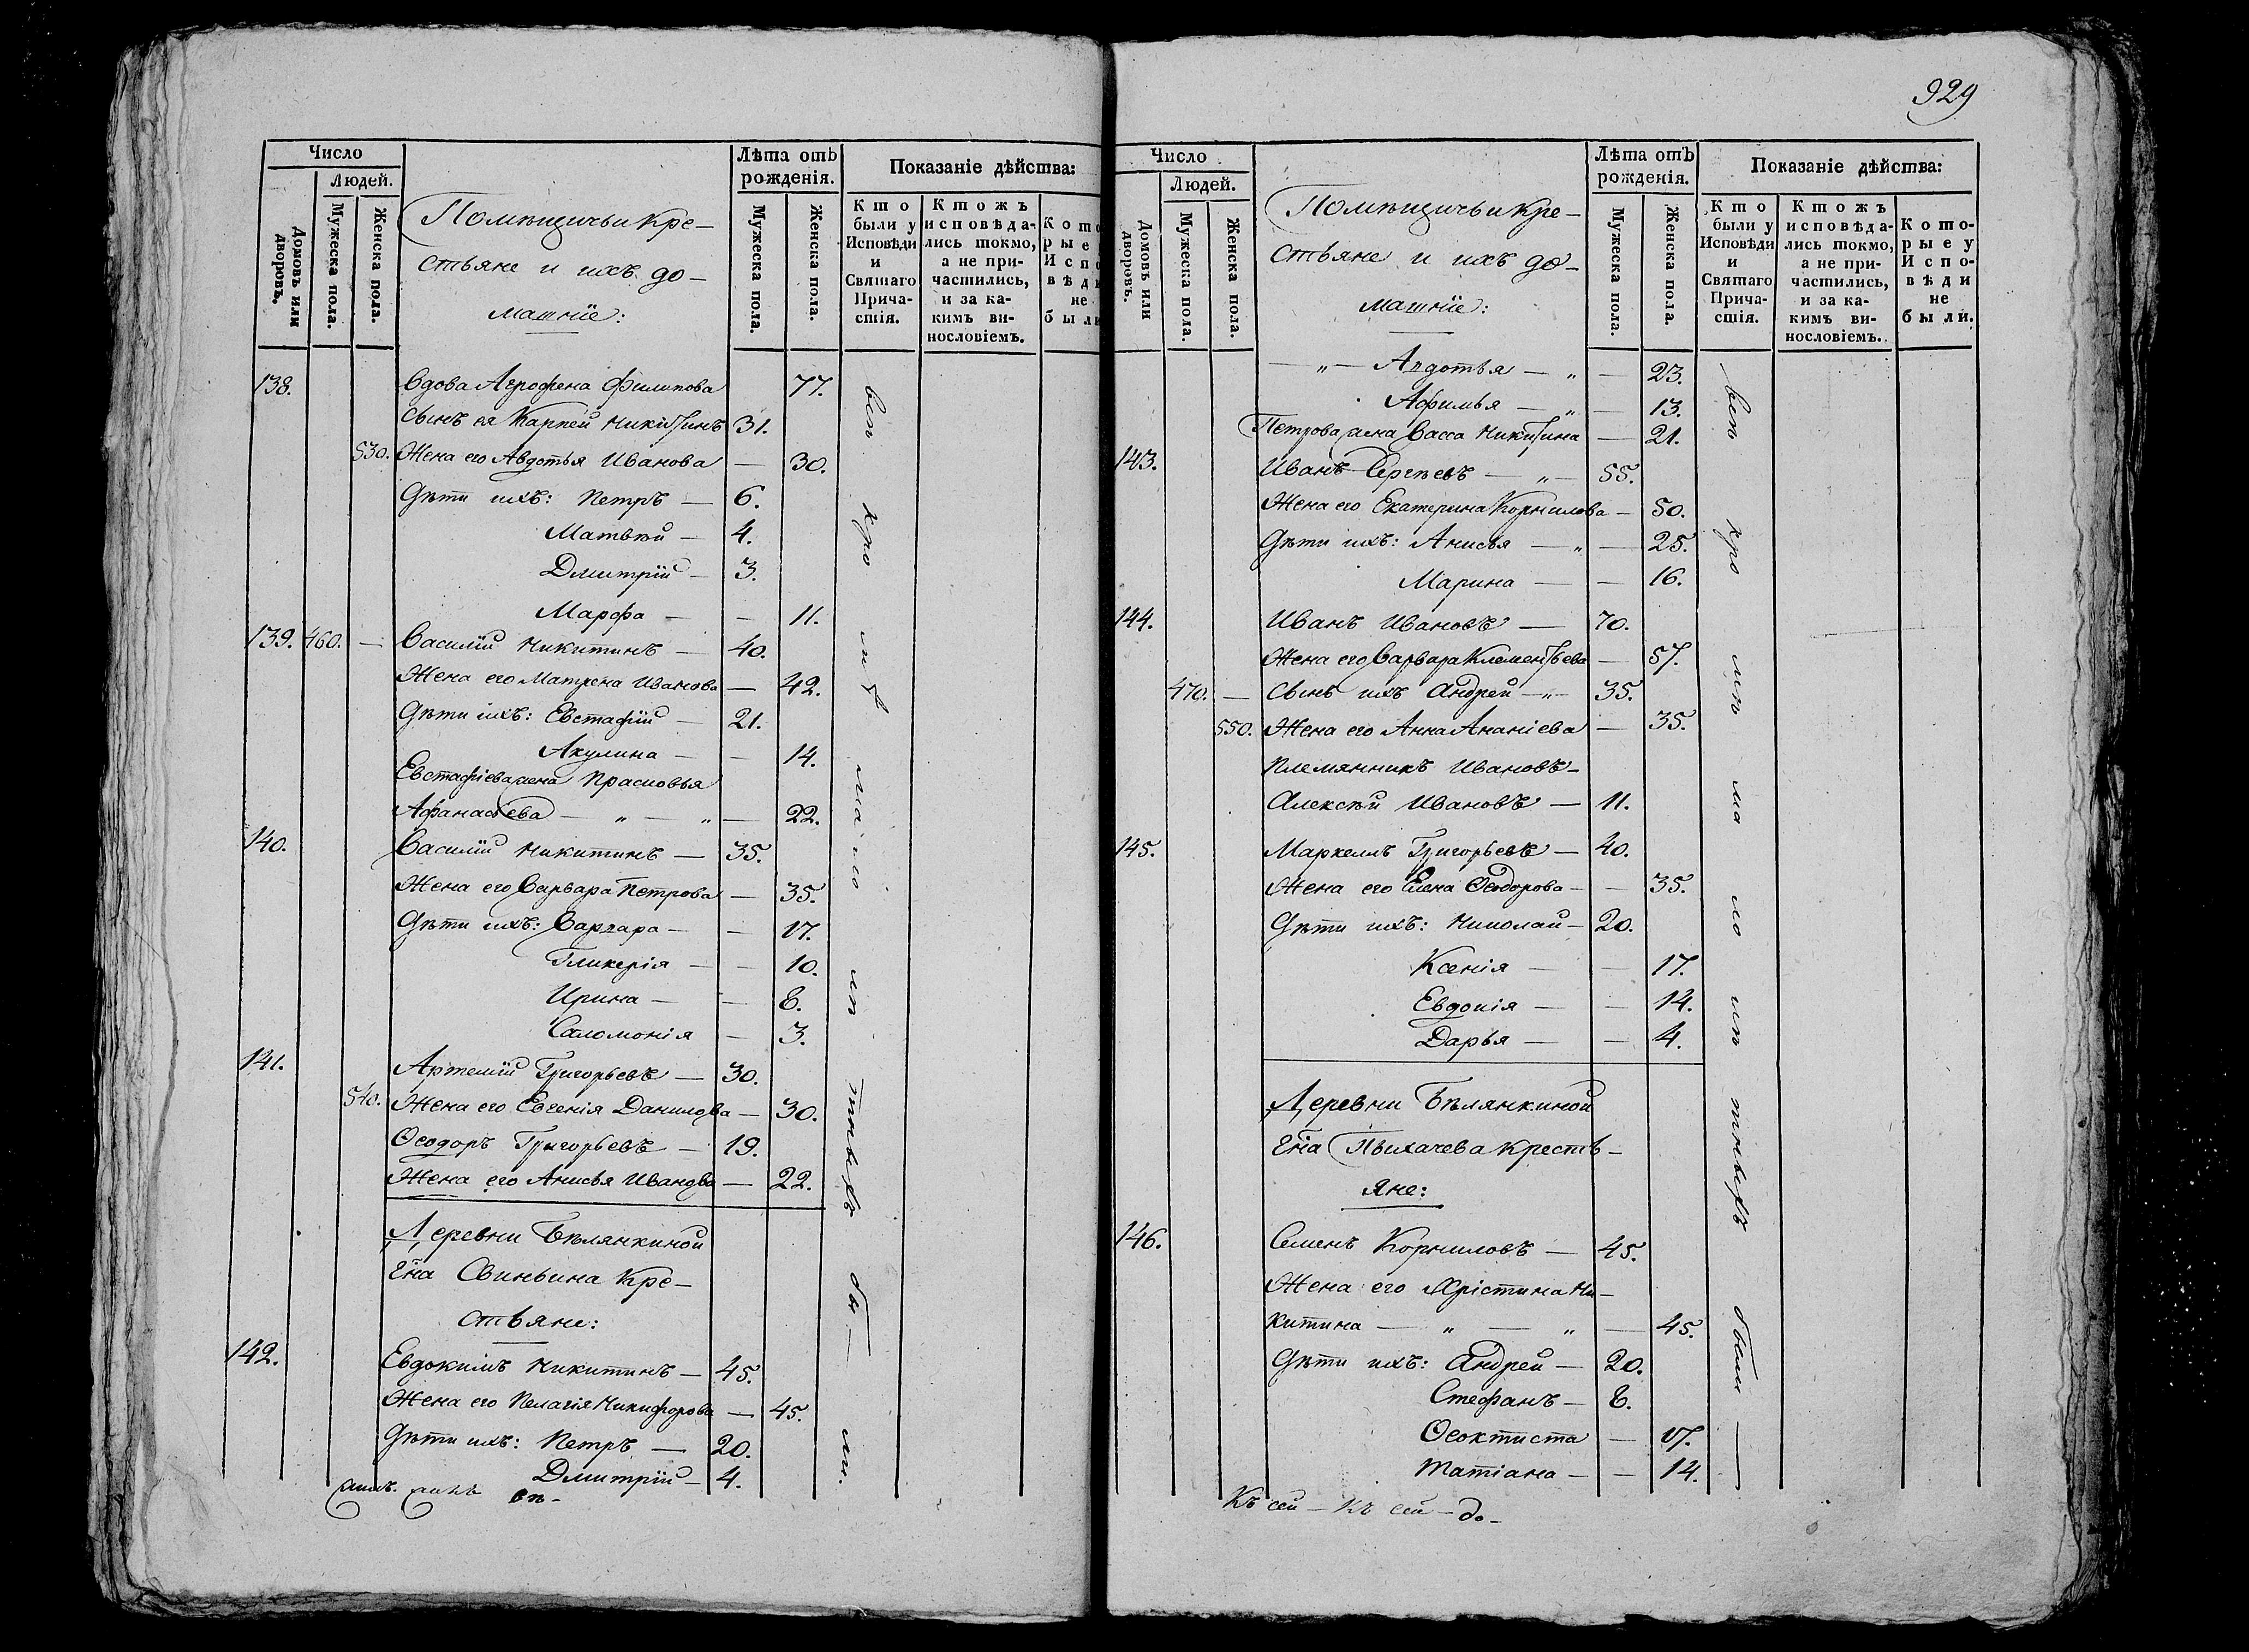 Число
Людей.
Домовъ или дворовъ.
Мужеска пола.
Женска пола.
Помѣщичьи кре-
стьяне и ихъ до-
машніе:
Лѣта отъ рожденія.
Мужеска пола.
Женска пола.
Показаніе дѣйства:
Кто были у Исповѣди и Святаго Причастія.
Ктожъ исповѣдались токмо, а не причастились, и за какимъ винословіемъ.
138. Вдова Агрофена Филипова 77.
Сынъ ея Карпей Никитинъ 31.
530. Жена его Авдотья Иванова — 30.
Дѣти ихъ: Петръ — 6.
Матвѣй — 4.
Дмитрій — 3.
Марфа — — 11.
139. 460. — Василій Никитинъ — 40.
Жена его Матрена Иванова — 42.
Дѣти ихъ: Евстафій — 21.
Акулина — — 14.
Евстафіева жена Прасковья
Афанасіева — „ — „ — 22.
140. Василій Никитинъ — 35.
Жена его Варвара Петрова — 35.
Дѣти ихъ: Варвара — — 17.
Гликерія — — 10.
Ирина — — 8.
Саломонія — 3.
141. Артемій Григорьевъ — 30.
540. Жена его Евгенія Данилова — 30.
Ѳеодоръ Григорьевъ — 19.
Жена его Анисья Иванова — 22.
Деревни Бѣлянкиной
Гна Свиньина кре-
стьяне:
142. Евдокимъ Никитинъ — 45.
Жена его Пелагія Никифорова — 45.
Дѣти ихъ: Петръ — 20.
Дмитрій — 4.
всѣ кро мѣ мало лѣ тныхъ бы — ли.
929
Число
Людей.
Домовъ или дворовъ.
Мужеска пола.
Женска пола.
Помѣщичьи кре-
стьяне и ихъ до-
машніе:
Лѣта отъ рожденія.
Мужеска пола.
Женска пола.
Показаніе дѣйства:
Кто были у Исповѣди и Святаго Причастія.
Ктожъ исповѣдались токмо, а не причастились, и за какимъ винословіемъ.
Которые у Исповѣди не были.
— „ — Авдотья — „ — 23.
Афимья — „ — 13.
Петрова жена Васса Никитина — 21.
143. Иванъ Сергѣевъ — „ — 55.
Жена его Екатерина Корнилова — 50.
Дѣти ихъ: Анисья — „ — 25.
Марина — — 16.
144. Иванъ Ивановъ — 70.
Жена его Варвара Клементьева — 57.
470. — Сынъ ихъ Андрей — „ — 35.
550. Жена его Анна Ананіева — 35.
Племянникъ Ивановъ —
Алексѣй Ивановъ — 11.
145. Маркеллъ Григорьевъ — 40.
Жена его Елена Ѳеодорова — — 35.
Дѣти ихъ: Николай — 20.
Ксенія — — 17.
Евдокія — — 14.
Дарья — — 4.
Деревни Бѣлянкиной
Гна Пыхачева кресть-
яне:
146. Семенъ Корниловъ — 45.
Жена его Христина Ни-
китина — „ — „ — 45.
Дѣти ихъ: Андрей — 20.
Стефанъ — 8.
Ѳеоктиста — 17.
Татіана — — 14.
Къ сей — къ сей — до-
всѣ кро мѣ ма ло лѣ тныхъ были —